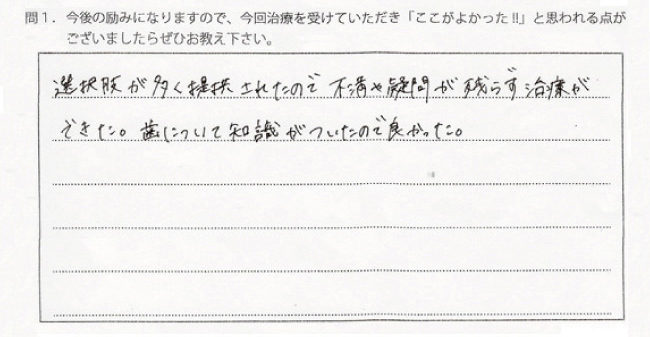 問1．今後の励みになりますので、今回治療を受けていただき「ここがよかった!!」と思われる点が
ございましたらぜひお教え下さい。
選択肢が多く提供されたので不満や疑問が残らず治療が
できた。歯について知識がついたので良かった。